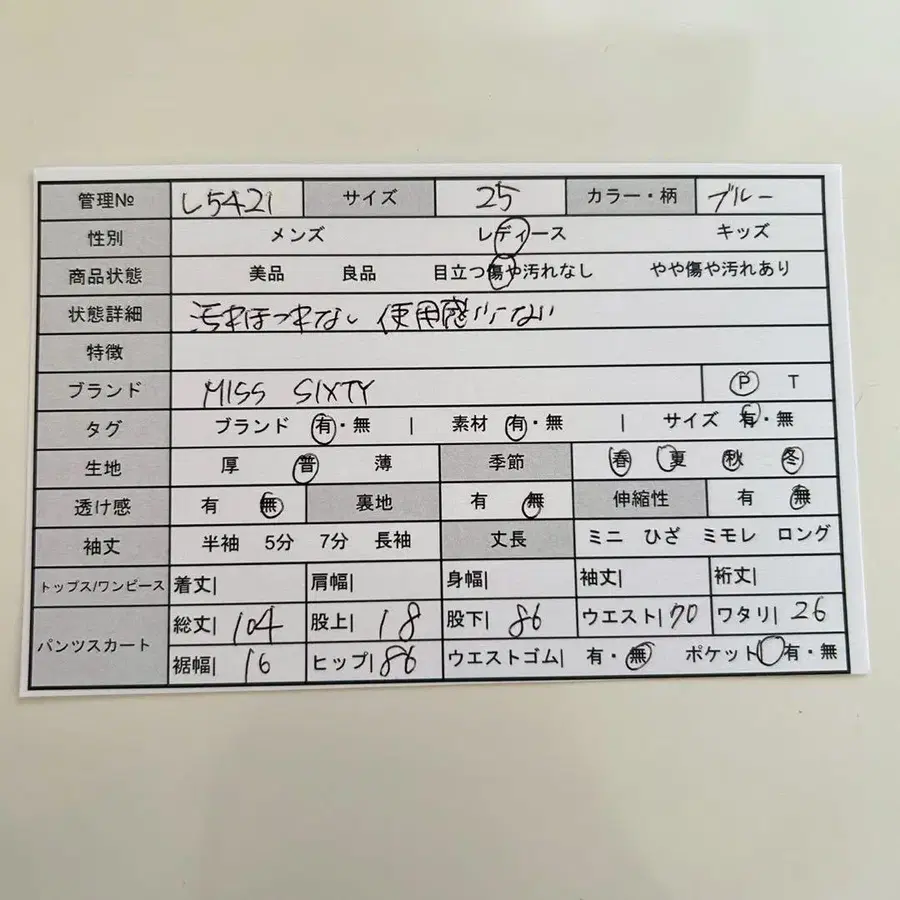 管理№ L5421 サイズ 25 カラー・柄 ブルー
性別 メンズ レディース キッズ
商品状態 美品 良品 目立つ傷や汚れなし やや傷や汚れあり
状態詳細 汚れほつれなし 使用感
特徴
ブランド MISS SIXTY P T
タグ ブランド 有・無 | 素材 有・無 | サイズ 有・無
生地 厚 普 薄 季節 春 夏 秋 冬
透け感 有 無 裏地 有 無 伸縮性 有 無
袖丈 半袖 5分 7分 長袖 丈長 ミニ ひざ ミモレ ロング
トップス/ワンピース 着丈| 肩幅| 身幅| 袖丈| 裄丈|
パンツスカート 総丈| 104 股上| 18 股下| 86 ウエスト| 70 ワタリ| 26
裾幅| 16 ヒップ| 86 ウエストゴム| 有・無 ポケット| 有・無